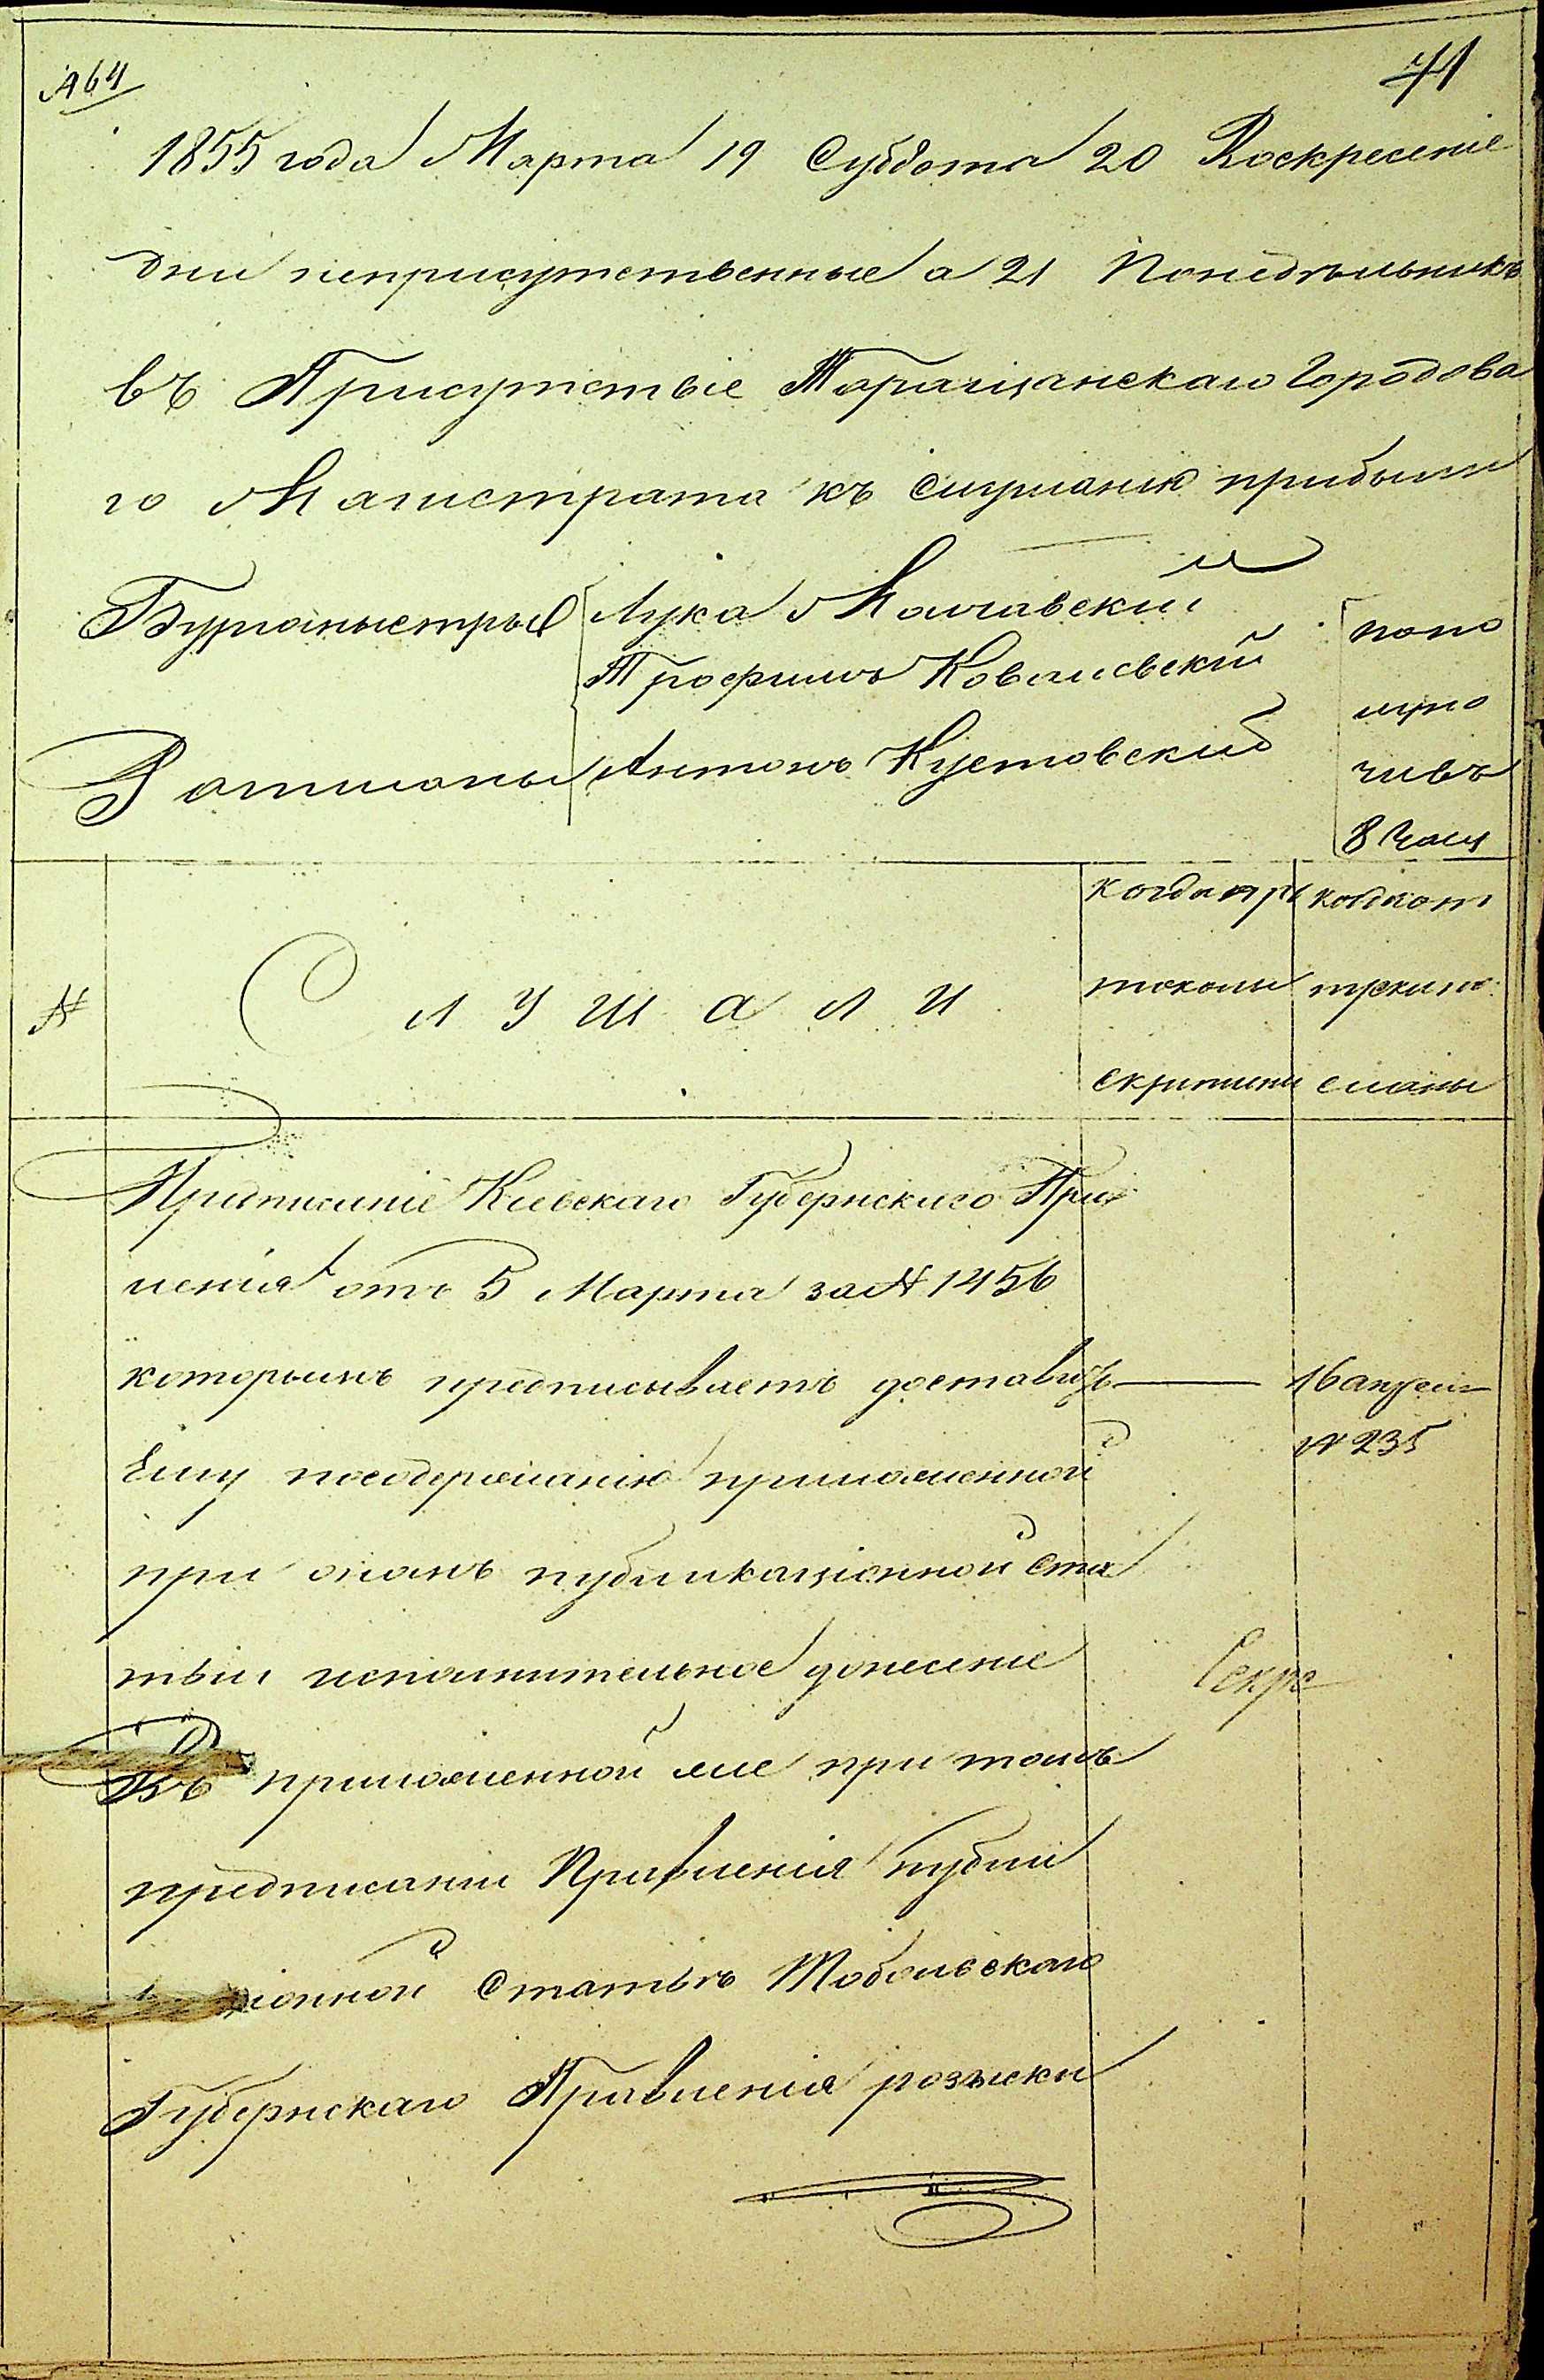 № 64
71
1855 года Марта 19 Суббота 20 Воскресение
дни неприсутственные а 21 Понедѣльникъ
въ Присутствіе Таращанскаго Городова
го Магистрата къ слушанію прибыли
Бургомыстры Лука Малчавский
Трофимъ Ковалевскій
Ратманы Антонъ Кустовский
попо
лупо
чивъ
8 Часа
№
Слушали
когда про
токолы
скриплены
когда от
трекито
сланы
Предписаніе Киевскаго Губернскиго Прав
ленія отъ 5 Марта за № 1456
которымъ предписываетъ доставить
16 апреля
№ 235
Ему посодержанію приложенной
при ономъ публикаціонной Ста
тьи исполнительное донесеніе
Секре
Въ приложенной же при томъ
предписаніи Правленія публи
ціонной Статьѣ Тобольскаго
Губернскаго Правленія розыски